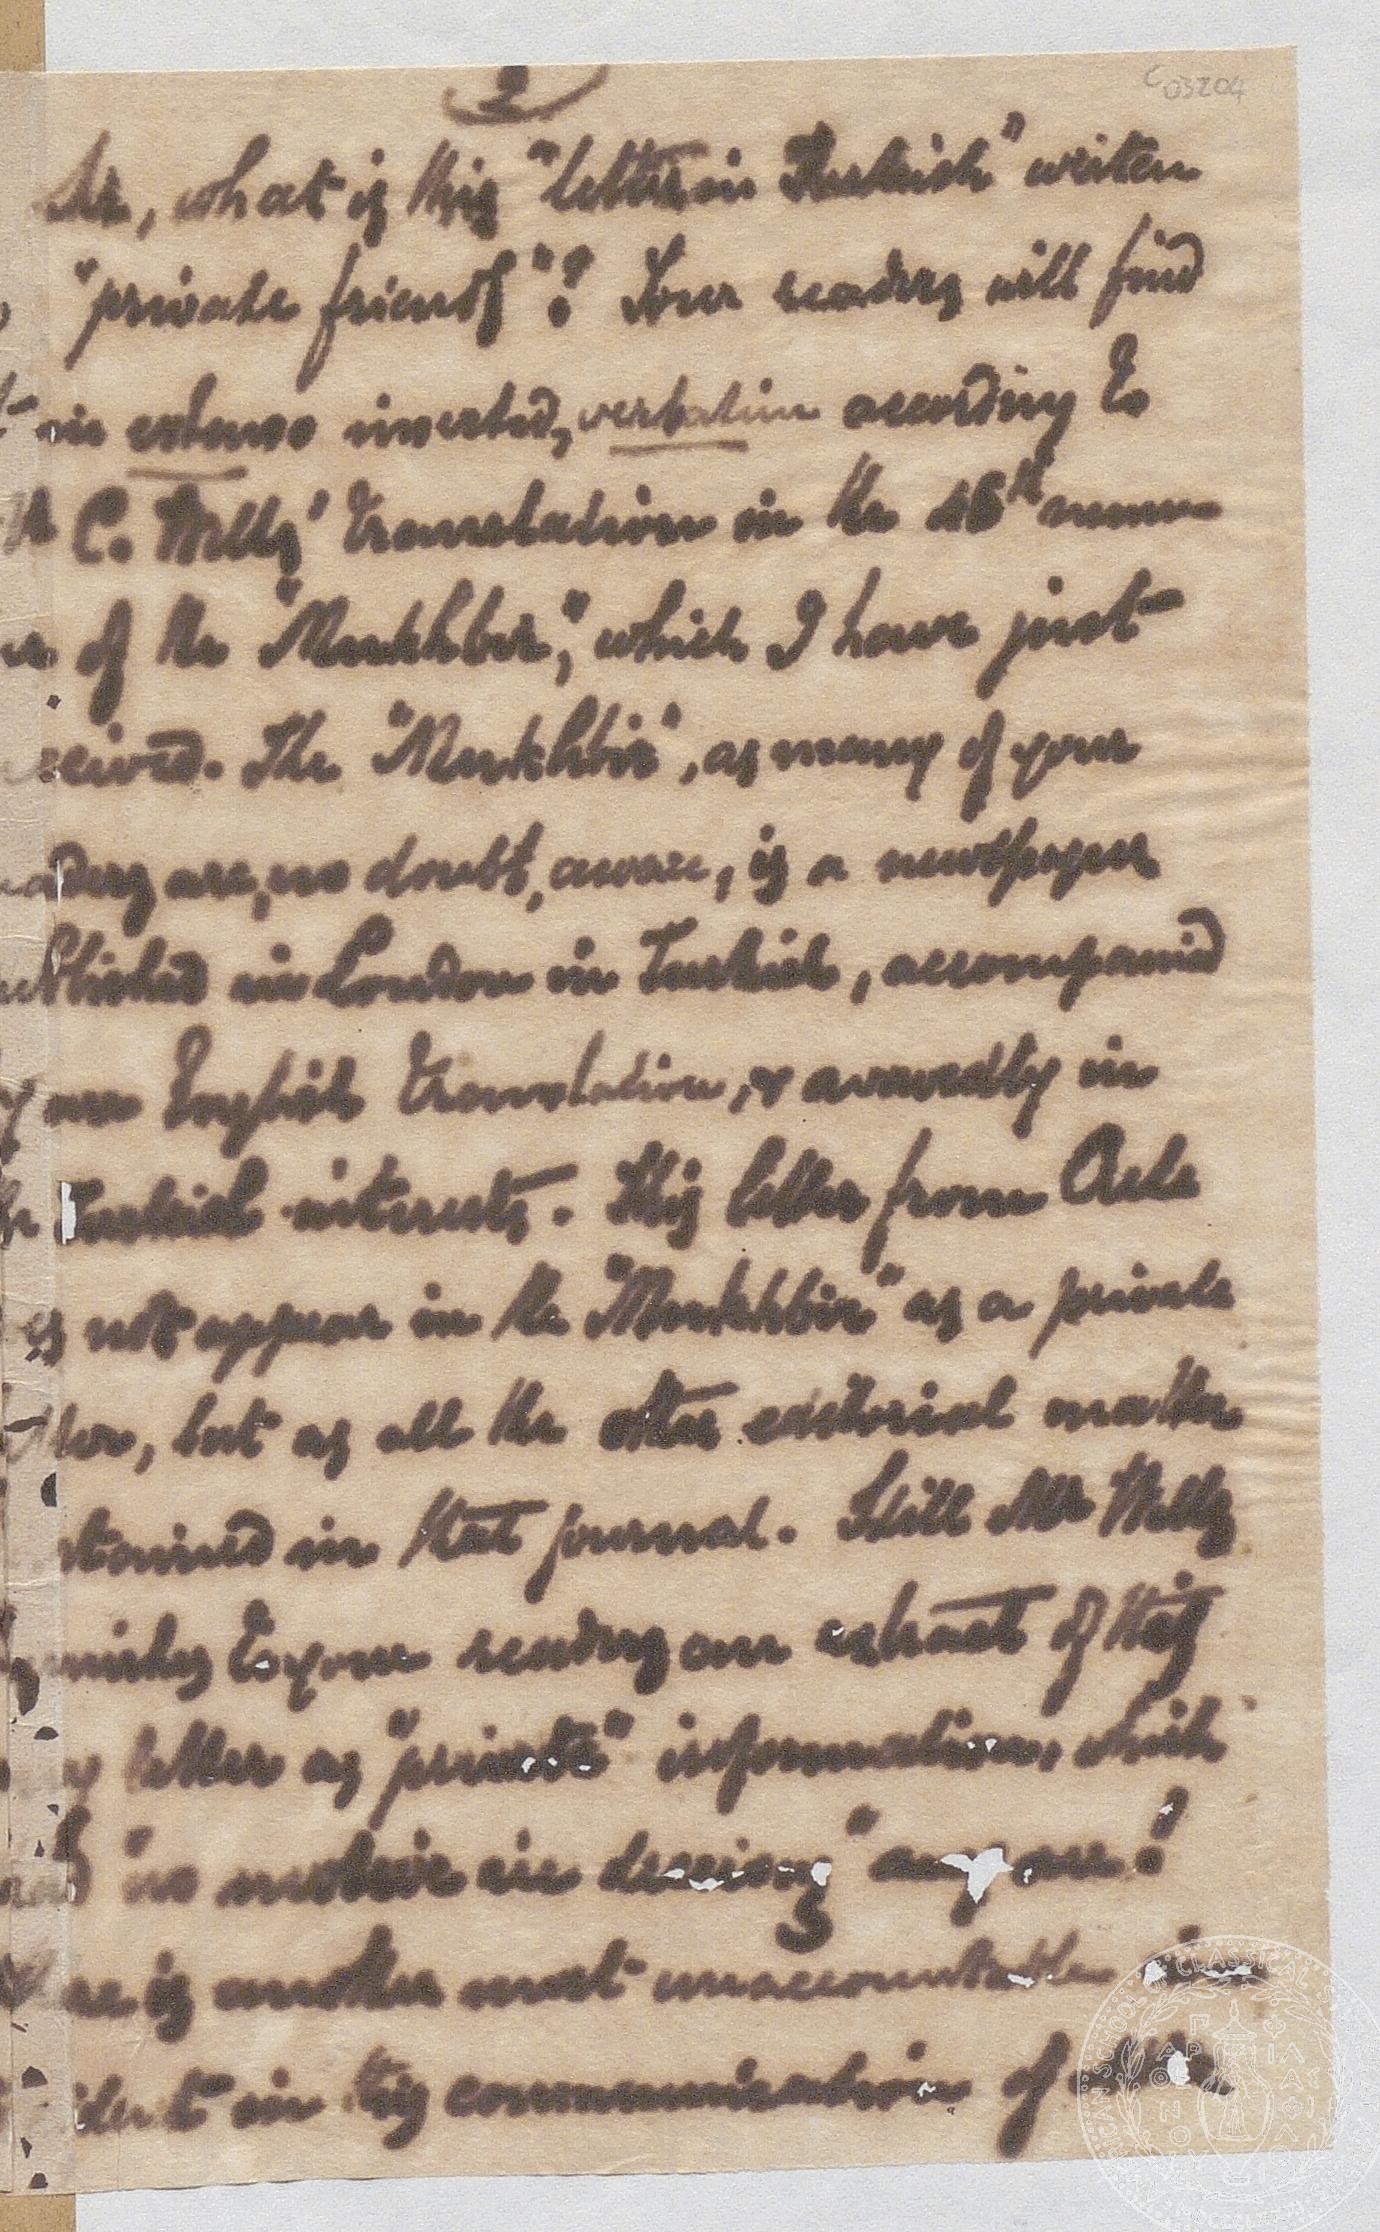 2
C03204
Sir, what is this "letter in Turkish" written
"private friend"? Your readers will find
in extenso inserted, verbatim according to
C. Wells' translation in the 46th num-
of the "Mukhbir," which I have just
ceived. The "Mukhbir", as many of your
aders are, no doubt, aware, is a newspaper
ublished in London in Turkish, accompanied
y an English translation, & avowedly in
he Turkish interests. This letter from Acte
es not appear in the "Mukhbir" as a private
tter, but as all the other editorial matter
ntained in that journal. Still Mr Wells
nishes to your readers an extract of this
letter as "private" information, which
"no motive in deceiving" any one!
ere is another most unaccountable in-
ident in this communication of Mr